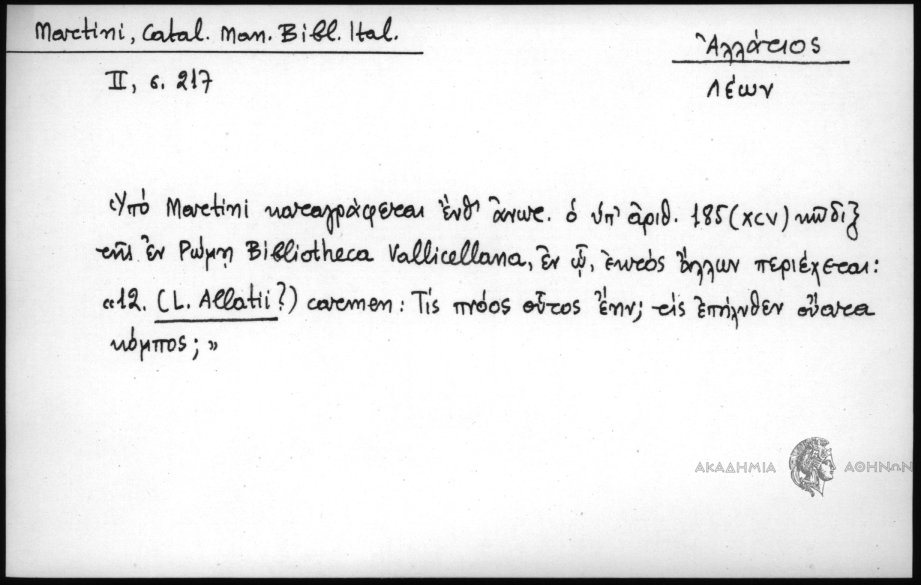 Martini, Catal. Man. Bibl. Ital.
II, σ. 217
Ἀλλάτιος
Λέων
Ὑπό Martini καταγράφεται ἔνθ' ἄνωτ. ὁ ὑπ' ἀριθ. 185 (XCV) κῶδιξ
τῆς ἐν Ρώμῃ Bibliotheca Vallicellana, ἐν ᾧ, ἐκτός ἄλλων περιέχεται:
«12. (L. Allatii?) carmen: Τίς πνόος οὗτος ἔην; τίς ἐπήλυθεν οὔατα
κόμπος; »
ΑΚΑΔΗΜΙΑ ΑΘΗΝΩΝ